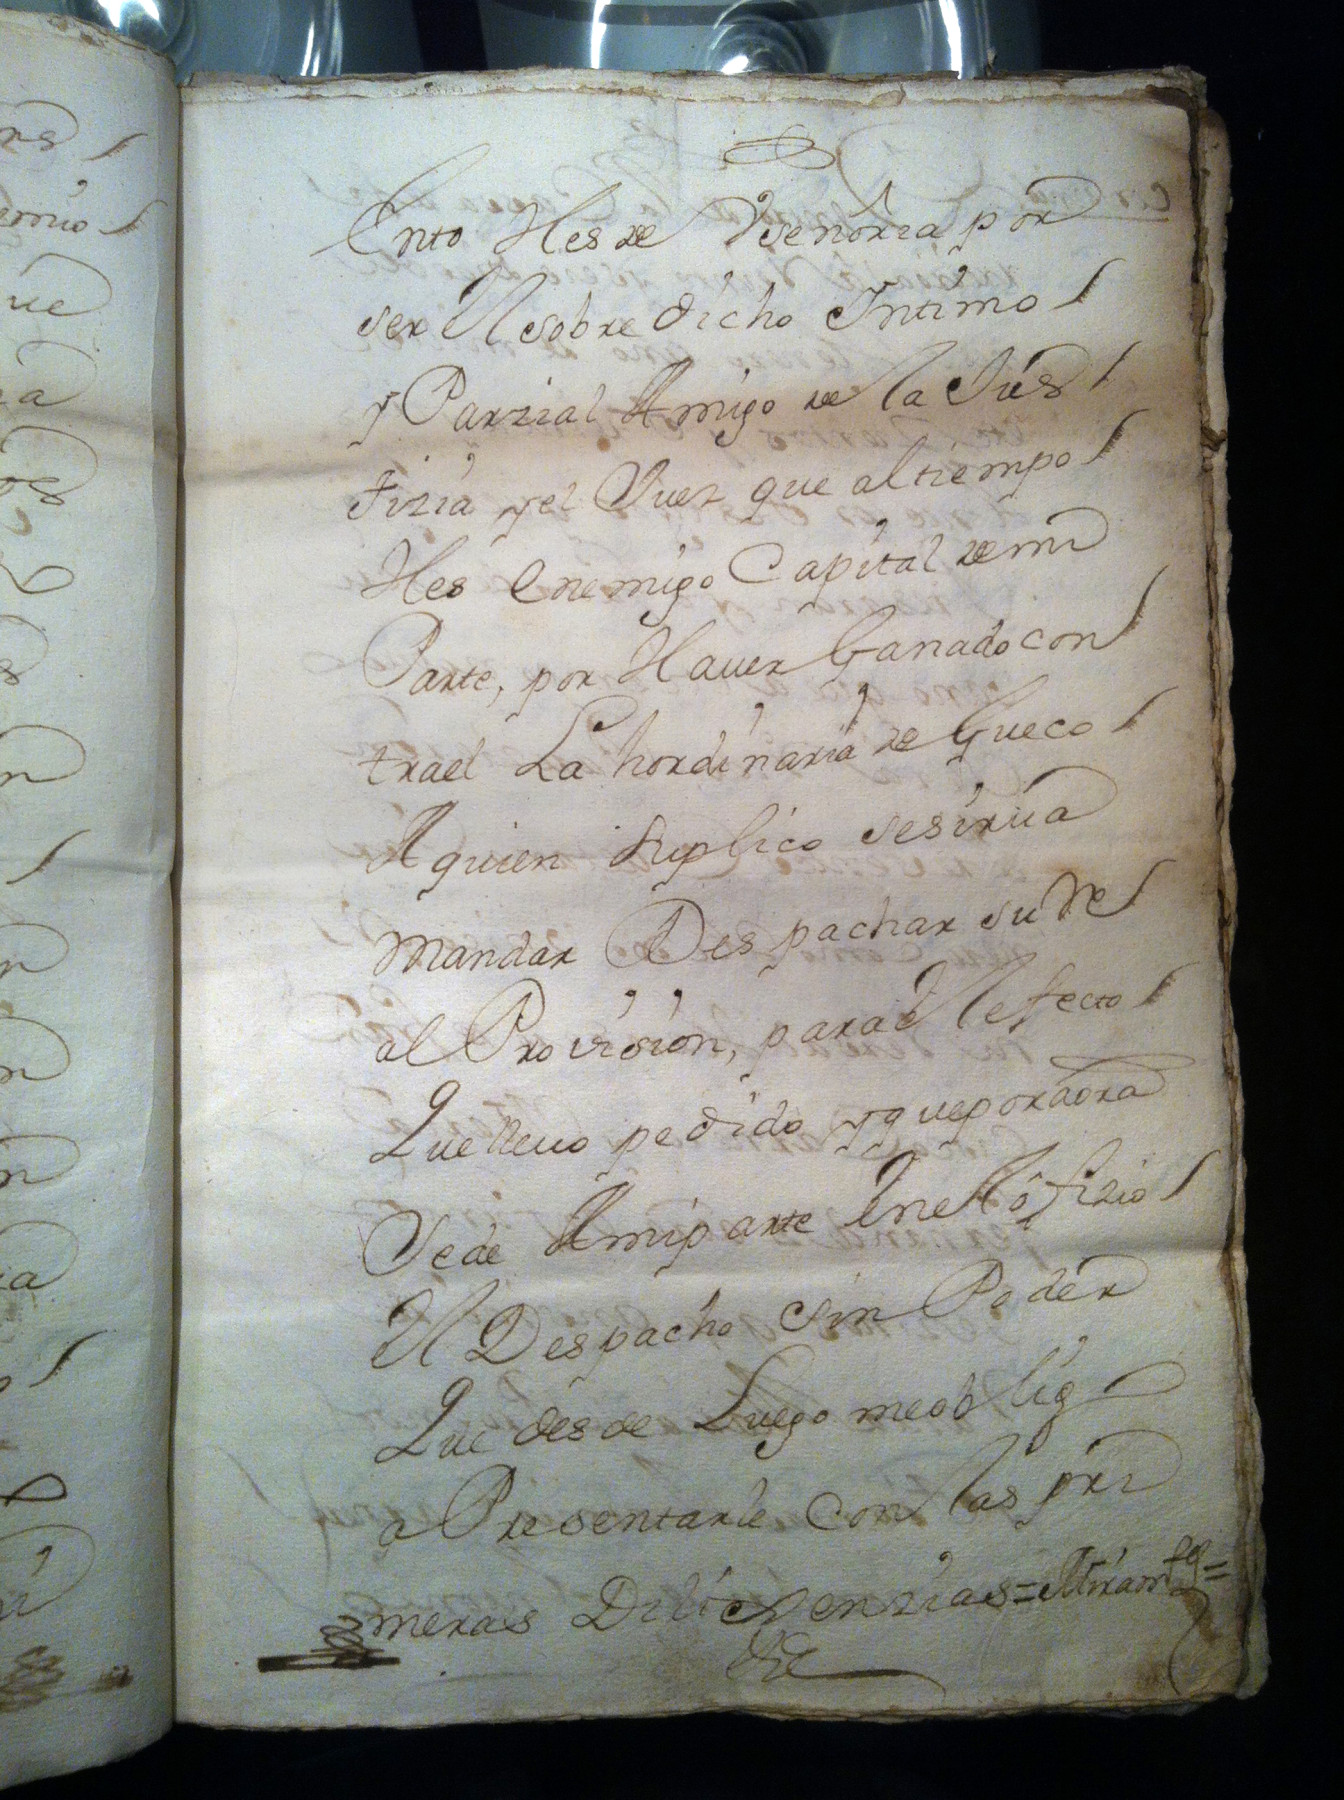 Ento Hes de Vsenoria por
ser El sobre dicho Intimo
y Parzial Amigo de la Jus
tizia y el Juez que al tiempo
Hes Enemigo Capital de mi
Parte, por Hauer Ganado con
trael La hordinaria de Gueco
A quien suplico se sirua
mandar Despachar su Re
al Provision, para El efecto
Que lleuo pedido y que por aora
Se de A mi parte En el ofizio
El Despacho sin Poder
Que desde Luego me oblig
a Presentarle con las pri
meras Diligenzias =